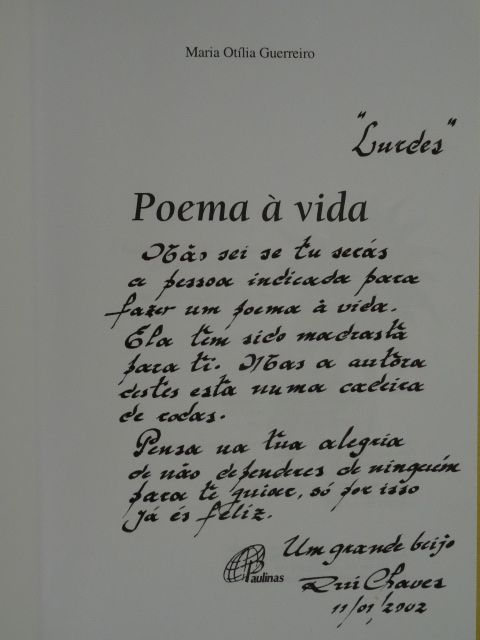 Maria Otília Guerreiro
"Lurdes"
Poema à vida
Não sei se tu serás
a pessoa indicada para
fazer um poema à vida.
Ela tem sido madrasta
para ti. Mas a autora
destes está numa cadeira
de rodas.
Pensa na tua alegria
de não dependeres de ninguém
para te guiar, só por isso
já és feliz.
Um grande beijo
Paulinas
Rui Chaves
11/01/2002